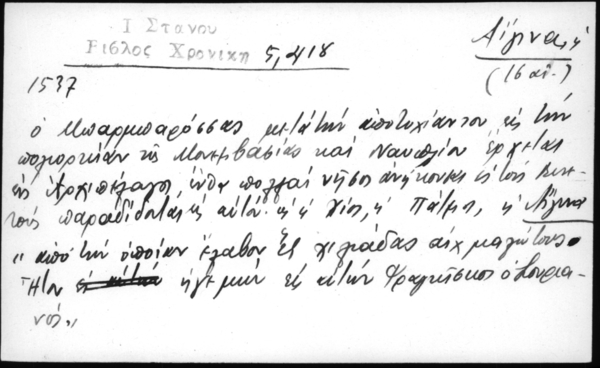 Ι Στανου
Βιβλος Χρονικη 5,418
Αἴγινα, ἡ
(16 αἰ.)
1537
ὁ Μπαρμπαρόσσας μετὰ τὴν ἀποτυχίαν του εἰς τὴν
πολιορκίαν τῆς Μονεμβασίας καὶ Ναυπλίου ἔρχεται
εἰς Ἀρχιπέλαγος, ἔνθα πολλαὶ νῆσοι ἀνήκουσαι εἰς τοὺς Βενε-
τοὺς παραδίδονται εἰς αὐτόν: ἡ Χίος, ἡ Πάτμος, ἡ Αἴγινα
" ἀπὸ τὴν ὁποίαν ἔλαβον ἓξ χιλιάδας αἰχμαλώτους.
Ἦτον ἡγεμὼν εἰς αὐτὴν Φραγκῖσκος ὁ Σουρια-
νός "